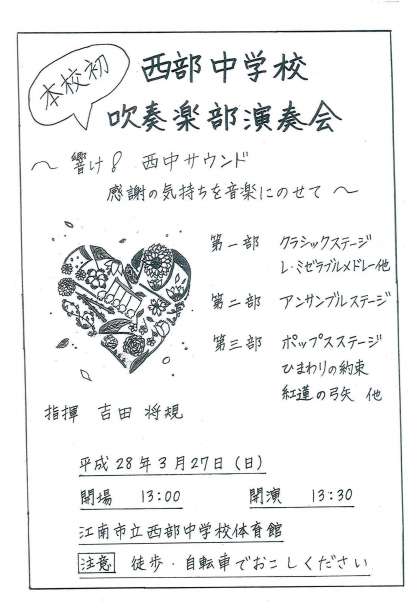 本校初
西部中学校
吹奏楽部演奏会
～ 響け♪ 西中サウンド
感謝の気持ちを音楽にのせて ～
第一部 クラシックステージ
レ・ミゼラブルメドレー他
第二部 アンサンブルステージ
第三部 ポップスステージ
ひまわりの約束
紅蓮の弓矢 他
指揮 吉田 将規
平成28年3月27日(日)
開場 13:00 開演 13:30
江南市立西部中学校体育館
注意 徒歩・自転車でおこしください